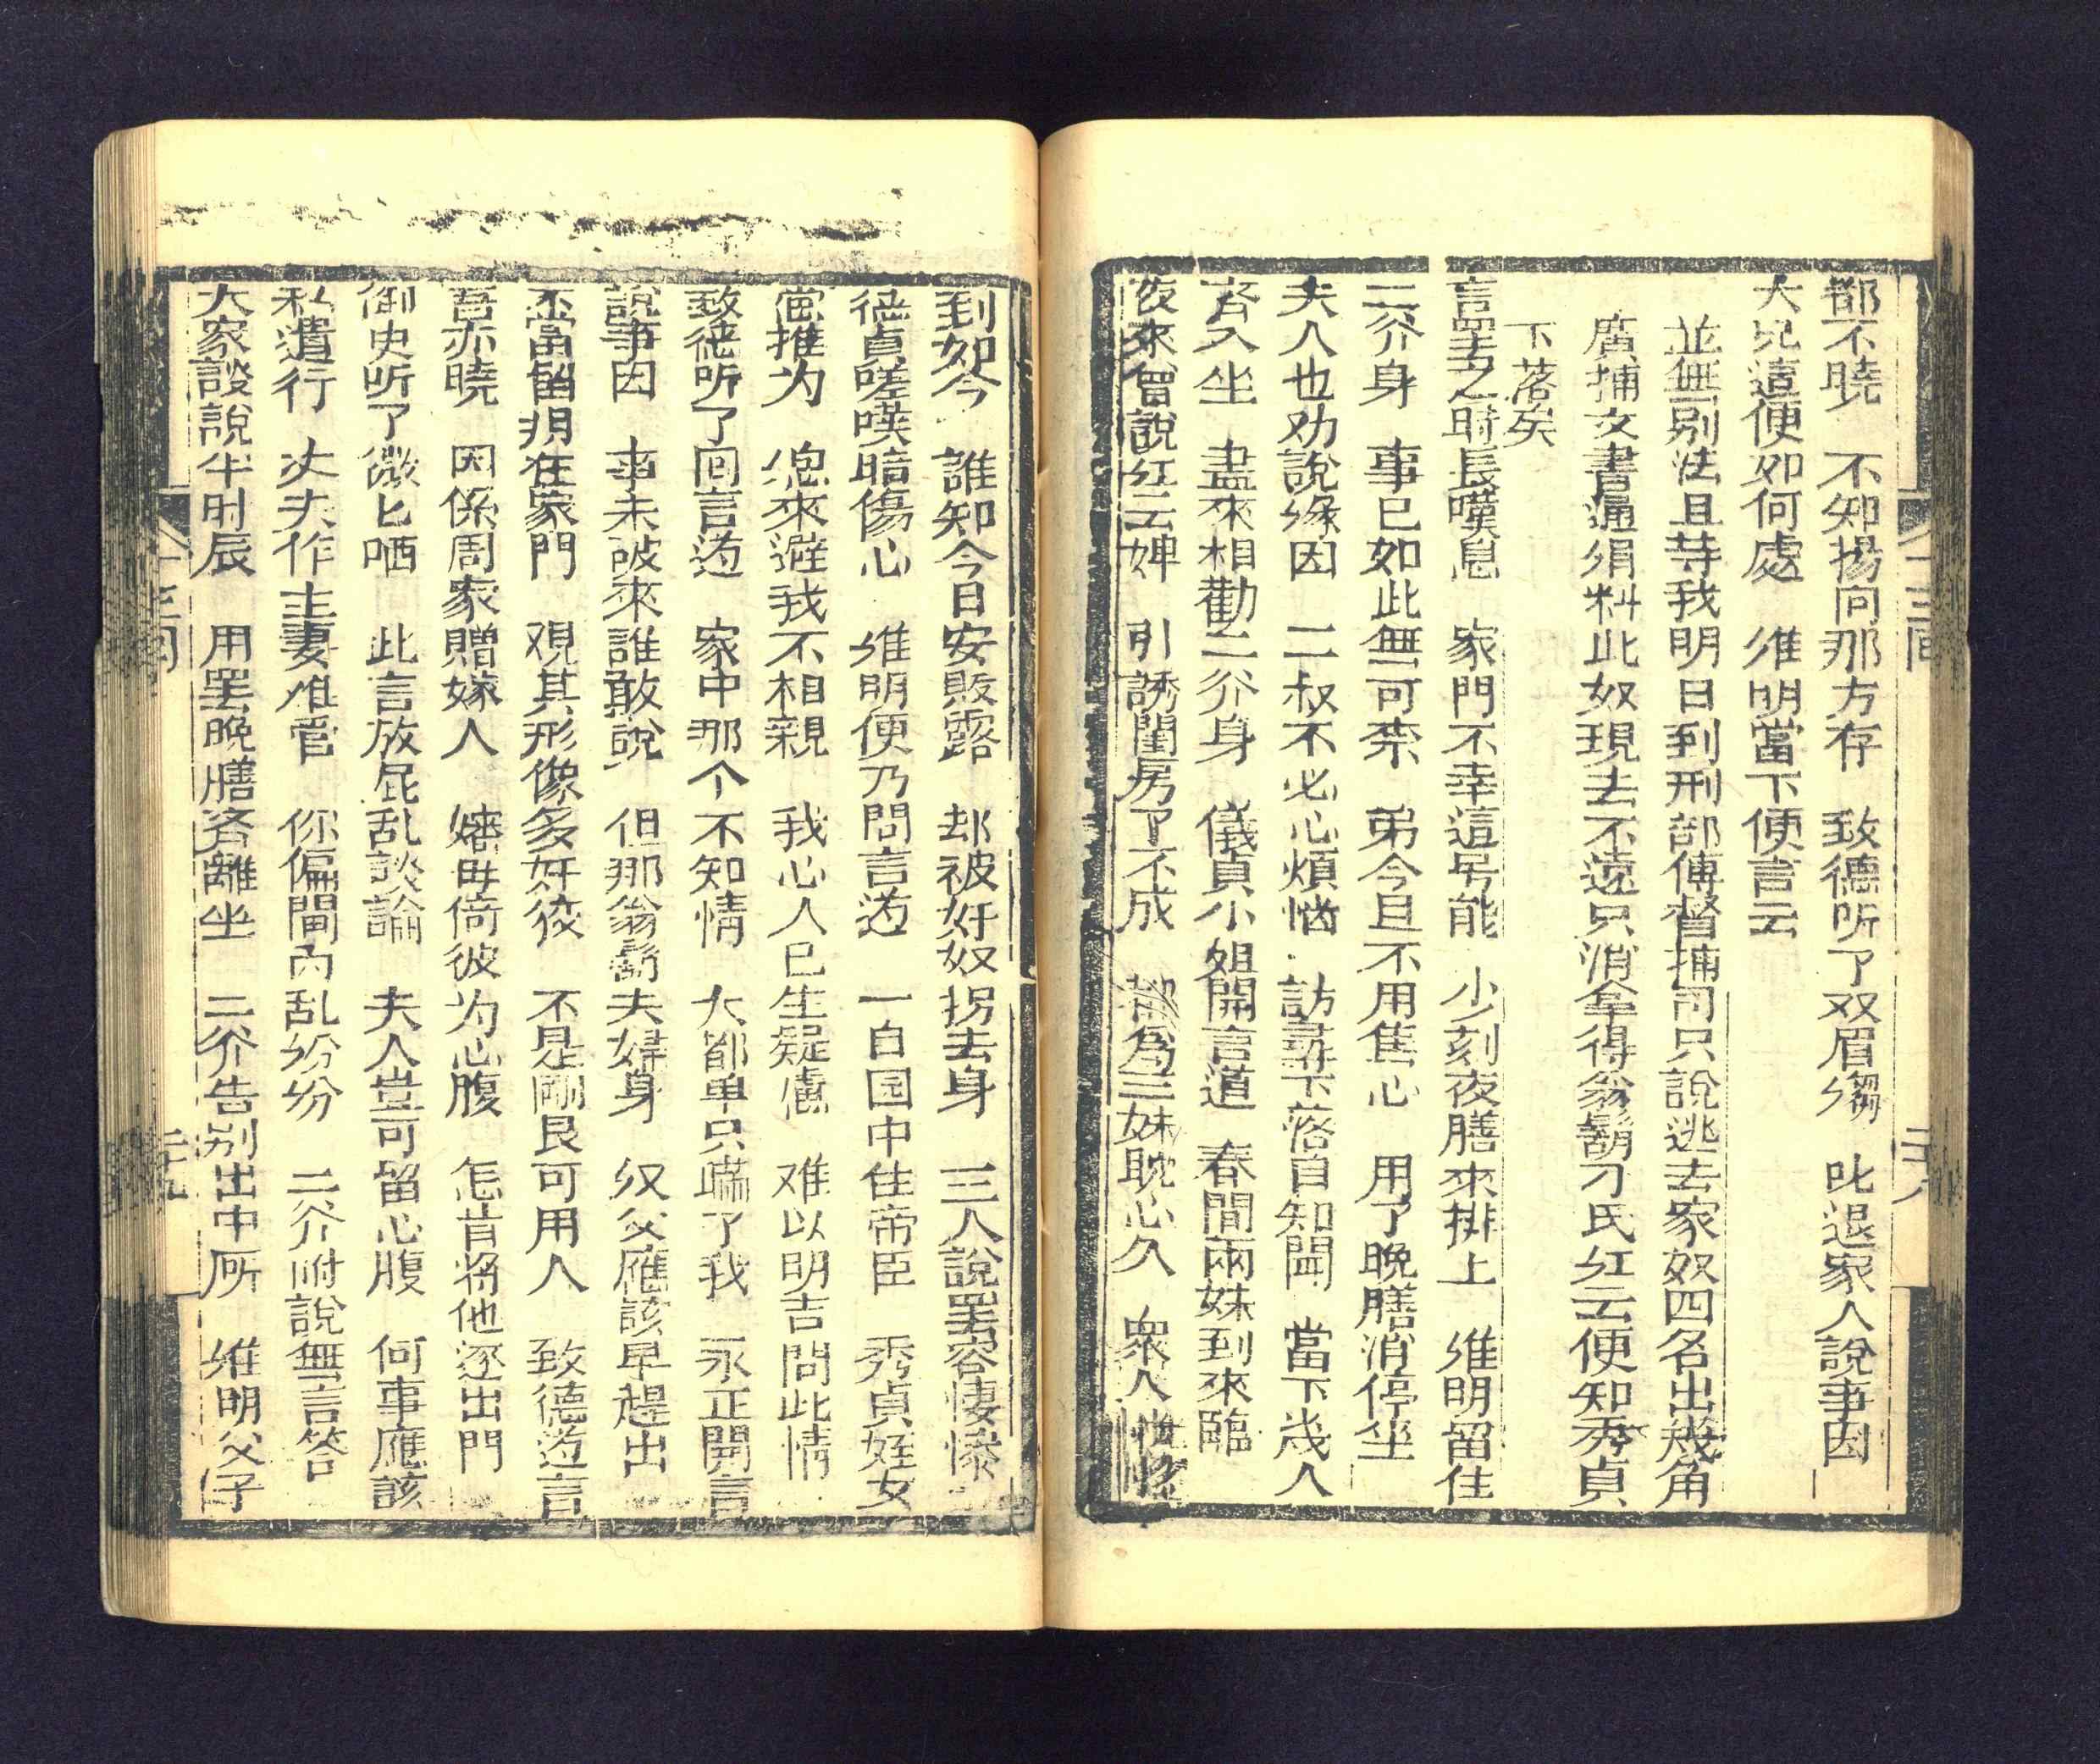 都不曉　不知揚向那方存　致德听了双眉縐　叱退家人說事因
大兄這便如何處　維明當下便言云
並無別法且等我明日到刑部傳督捕司只說逃去家奴四名出幾角
廣捕文書通緝料此奴現去不遠只消拿得翁鬍刁氏紅云便知秀貞
下落矣
言罢之時長嘆息　家門不幸這另能　少刻夜膳來排上　維明留住
二爷身　事已如此無可柰　弟今且不用焦心　用了晚膳消停坐
夫人也劝說缘因　二叔不必心煩惱　訪尋下落自知聞　當下幾人
齐入坐　盡來相勸二爷身　儀貞小姐開言道　春間兩妹到來臨
夜來曾說红云婢　引誘閨房了不成　爲三妹耽心久　衆人
十三回
到如今　誰知今日安敗露　却被奸奴拐去身　三人說罢容悽慘
德貞嗟嘆暗傷心　維明便乃問言道　一自园中住帝臣　秀貞姪女
當推为　來避我不相親　我心人已生疑慮　难以明言問此情
致德听了回言道　家中那个不知情　大都单只瞞了我　永正開言
說事因　事未破來誰敢說　但那翁鬍夫婦身　叔父應該早趕出
不當留将在家門　观其形像多奸狡　不是剛良可用人　致德道言
吾亦曉　因係周家贈嫁人　嬸母倚彼为心腹　怎肯将他逐出門
御史听了微匕哂　此言放屁乱談論　夫人豈可留心腹　何事應該
私遣行　丈夫作主妻难管　你偏閫內乱纷纷　二爷听說無言答
大家談說半时辰　用罢晚膳各離坐　二爷告别出中厛　維明父子
十三回